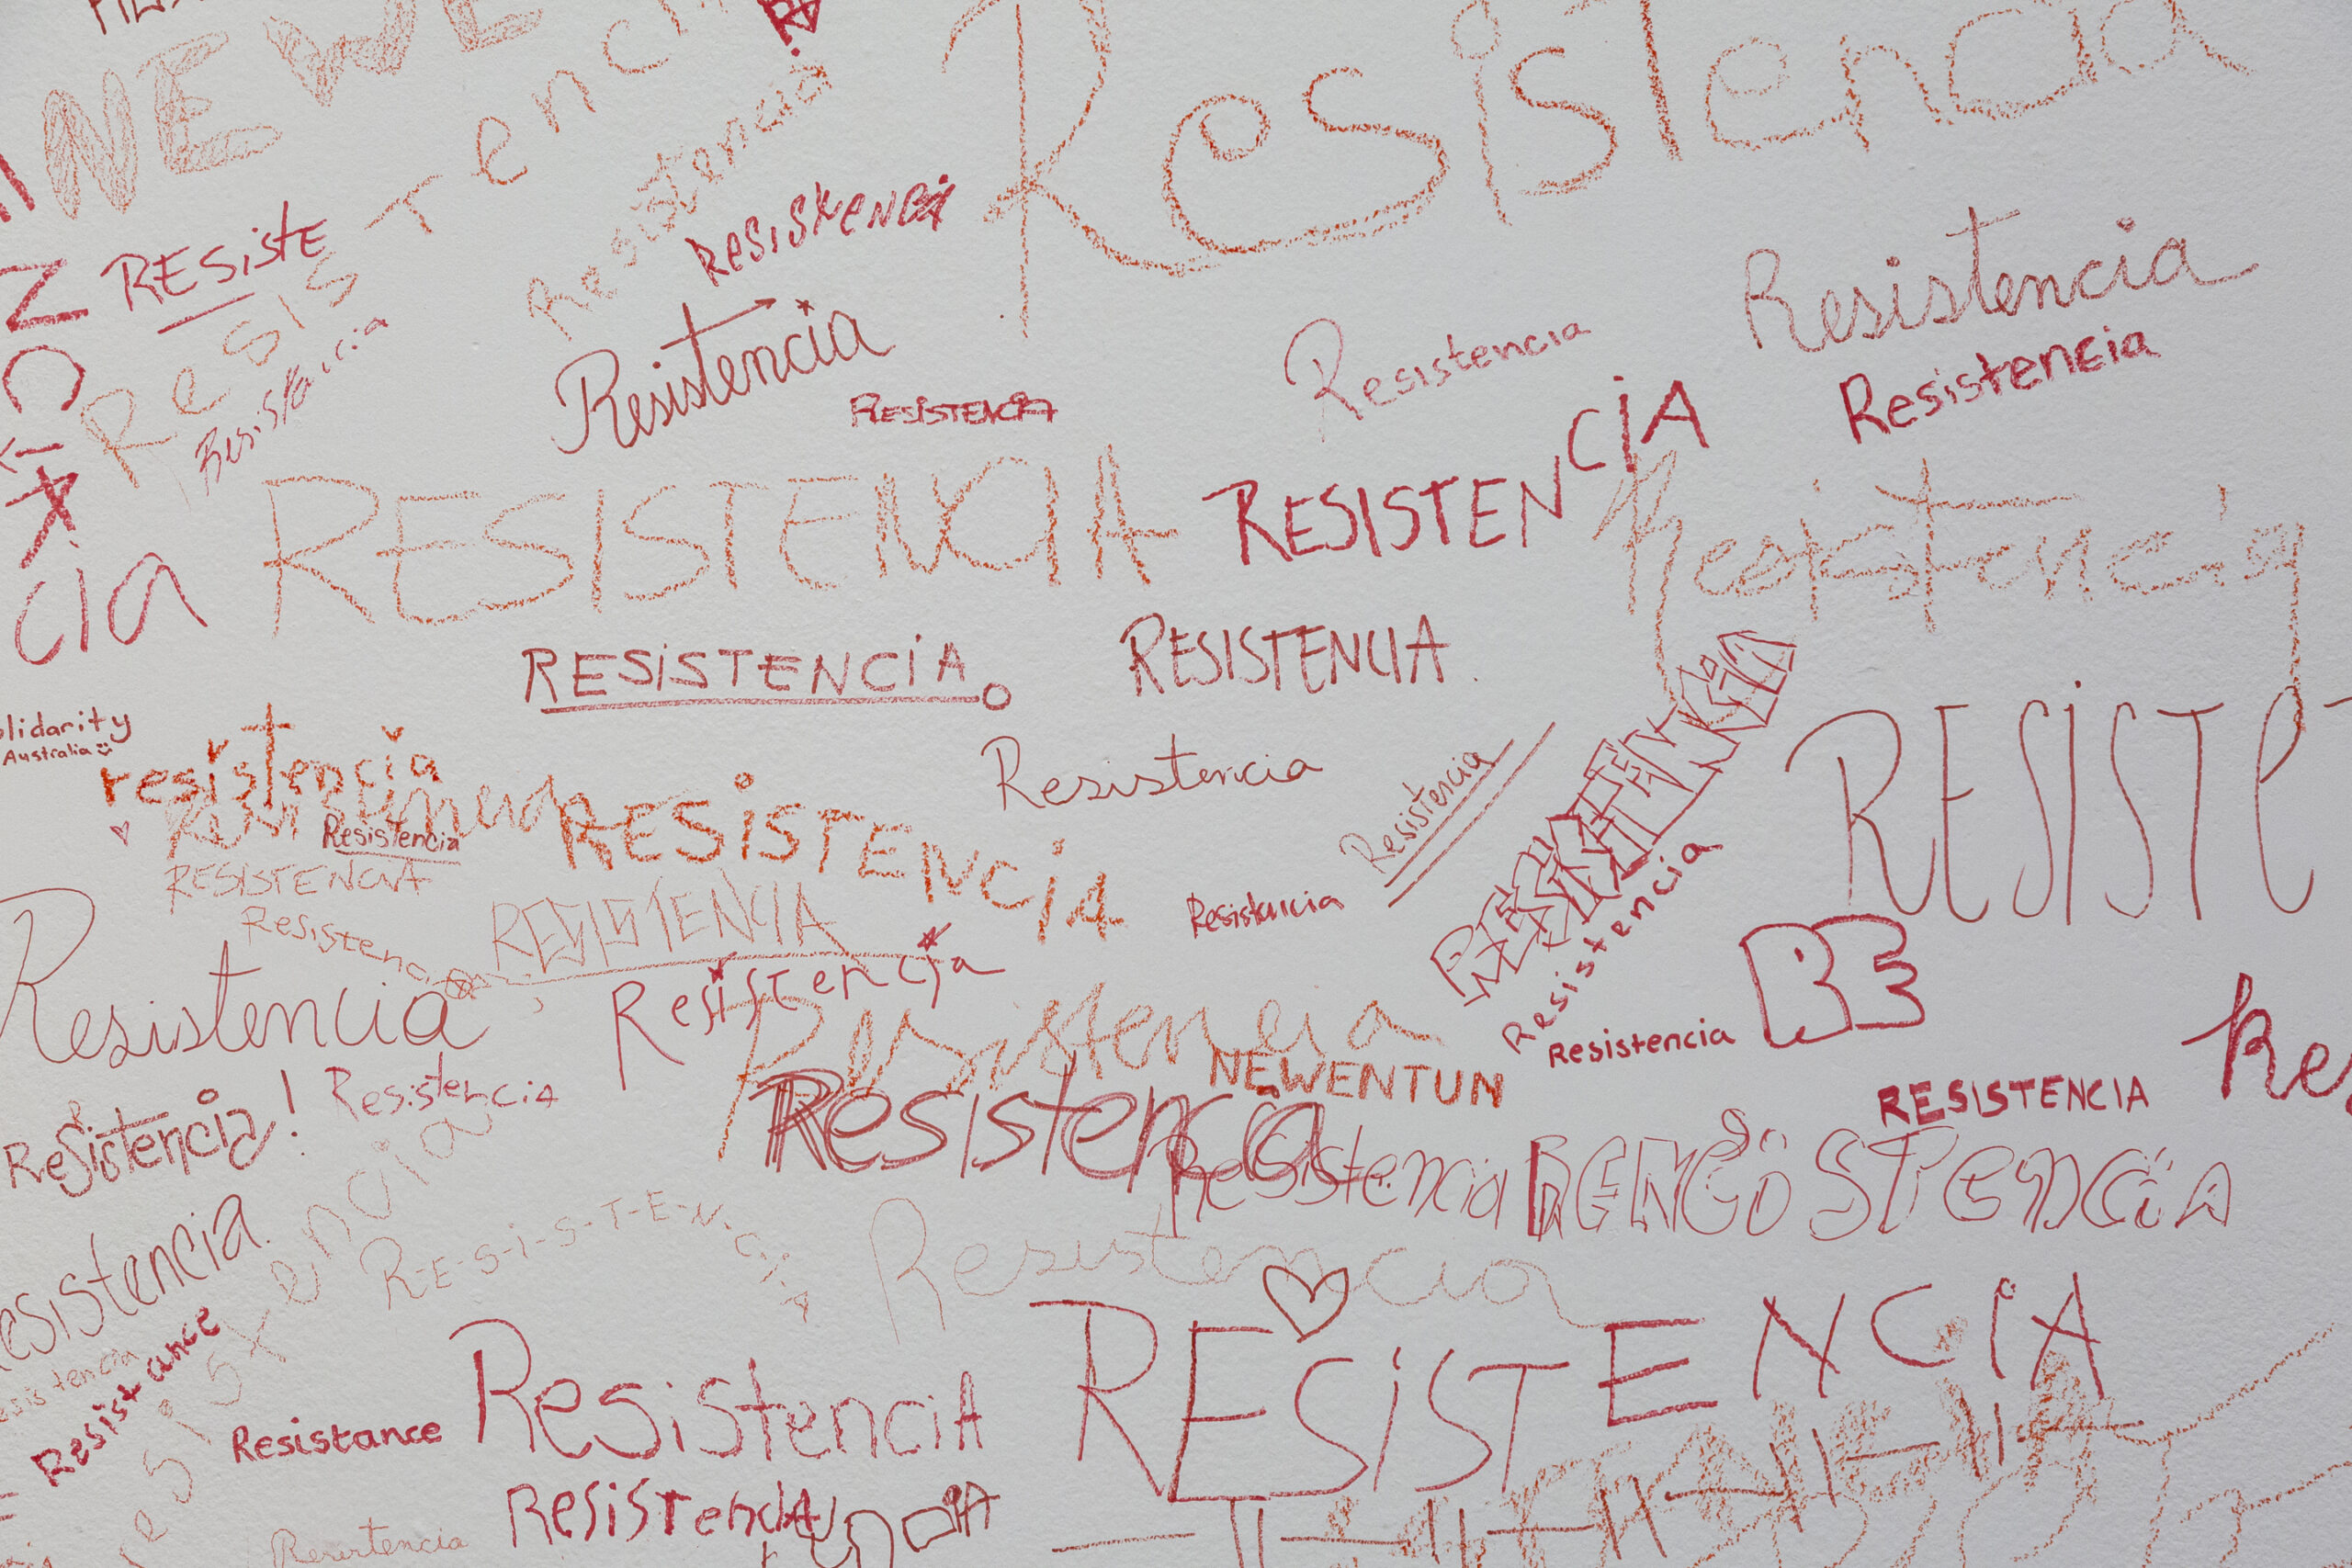 NEWE
Resistencia
Resistencia
Resistencia
RESiSTENCi
RESiste
Resistencia
Resistencia
Resistencia
Resistencia
RESISTENCIA
Resistencia
Resistencia
RESISTENCIA
RESISTENCiA
Resistencia
cia
RESiSTENCiA
RESISTENCIA.
olidarity
Australia
resistencia
Resistencia
Resistencia
RESISTENCIA
RESISTE
RESiSTENCiA
Resistencia
RESISTENCIA
Resistencia
Resistencia
Resistencia
RESISTENCIA
Resistencia
Resistencia
Resistencia
RE
Resistencia
Resistencia
Re
NEWENTUN
RESISTENCIA
Resistencia!
Resistencia
Resistencia
Resistencia
esistencia.
R-E-S-i-S-T-E-N-C-i-A
Resistencia
RESiSTENCiA
esistencia
Resistance
Resistance
ResistenciA
ResisTencIA
Resistencia